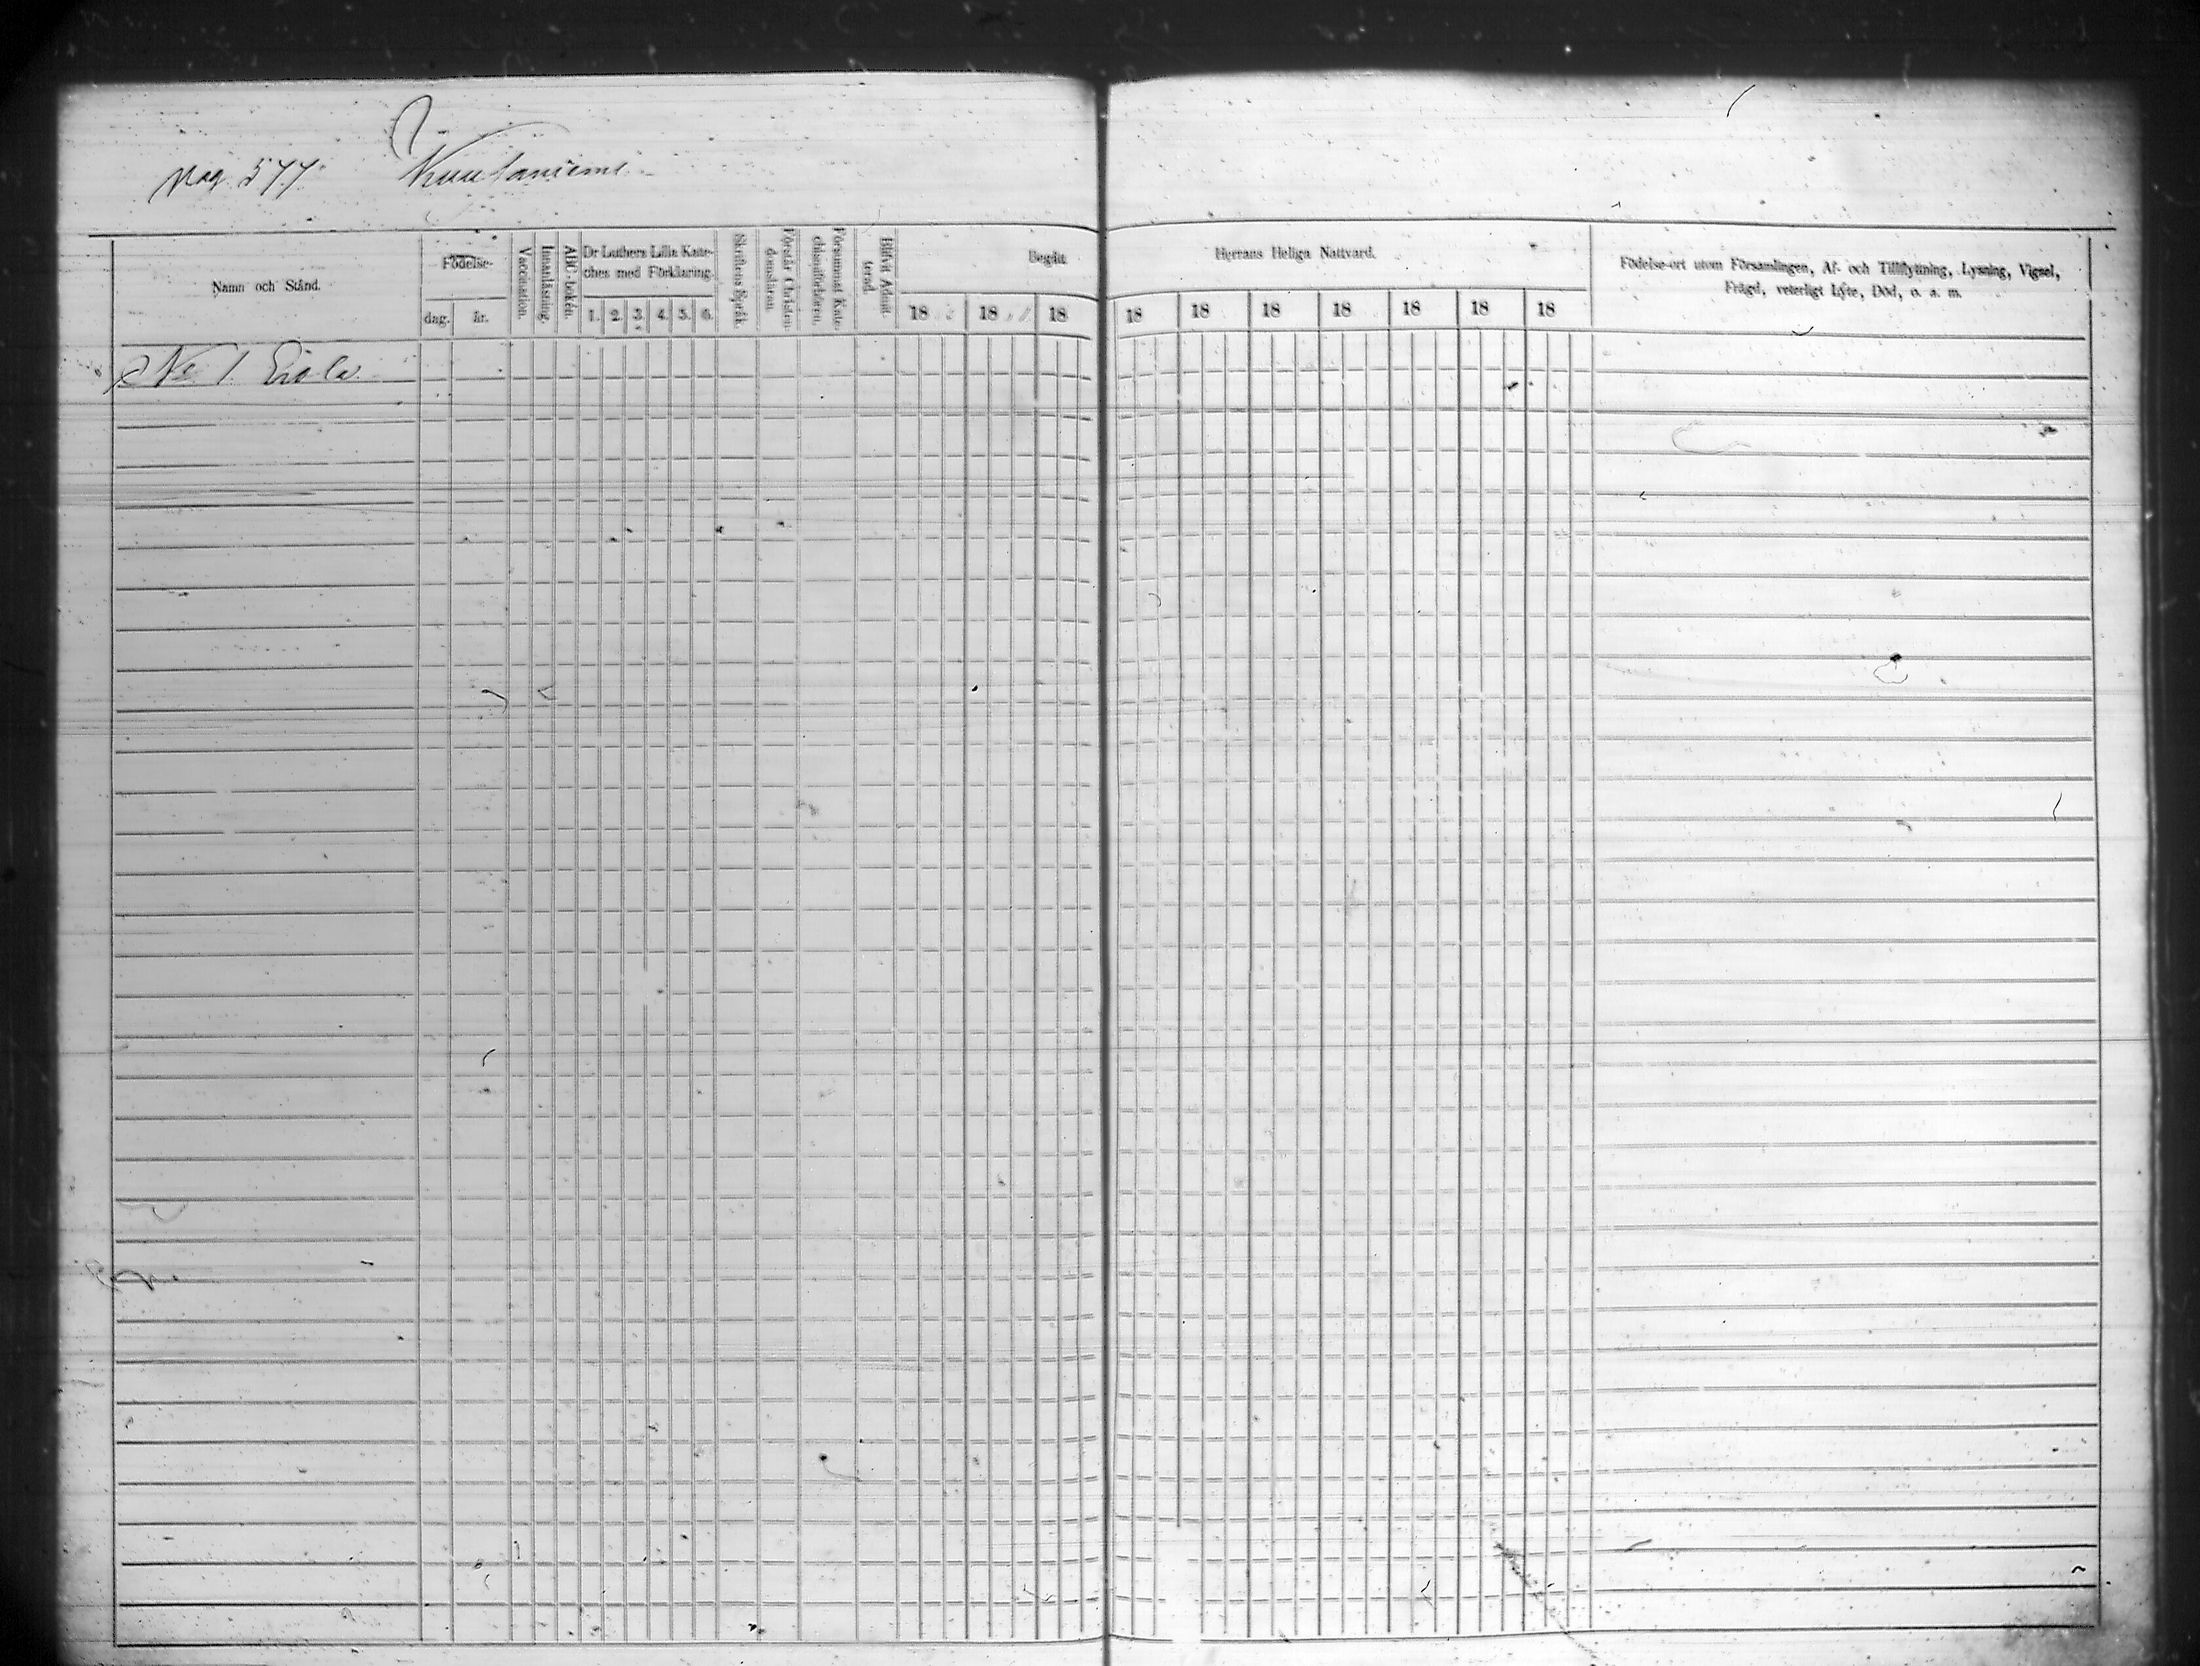 pag. 577. Kuutaniemi
Namn och Stånd.
Födelse-
dag. år.
Vaccination.
Innanläsning.
ABC-boken.
Dr Luthers Lilla Kate-
ches med Förklaring.
1. 2. 3. 4. 5. 6.
Skriftens Språk.
Förstår Christen-
domsläran.
Försummat Kate-
chismiförhören.
Blifvit Admit-
terad.
Begått Herrans Heliga Nattvard.
18 18 18 18 18 18 18 18 18 18
Födelse-ort utom Församlingen, Af- och Tillflyttning, Lysning, Vigsel,
Frägd, veterligt Lyte, Död, o. a. m.
No 1. Erola